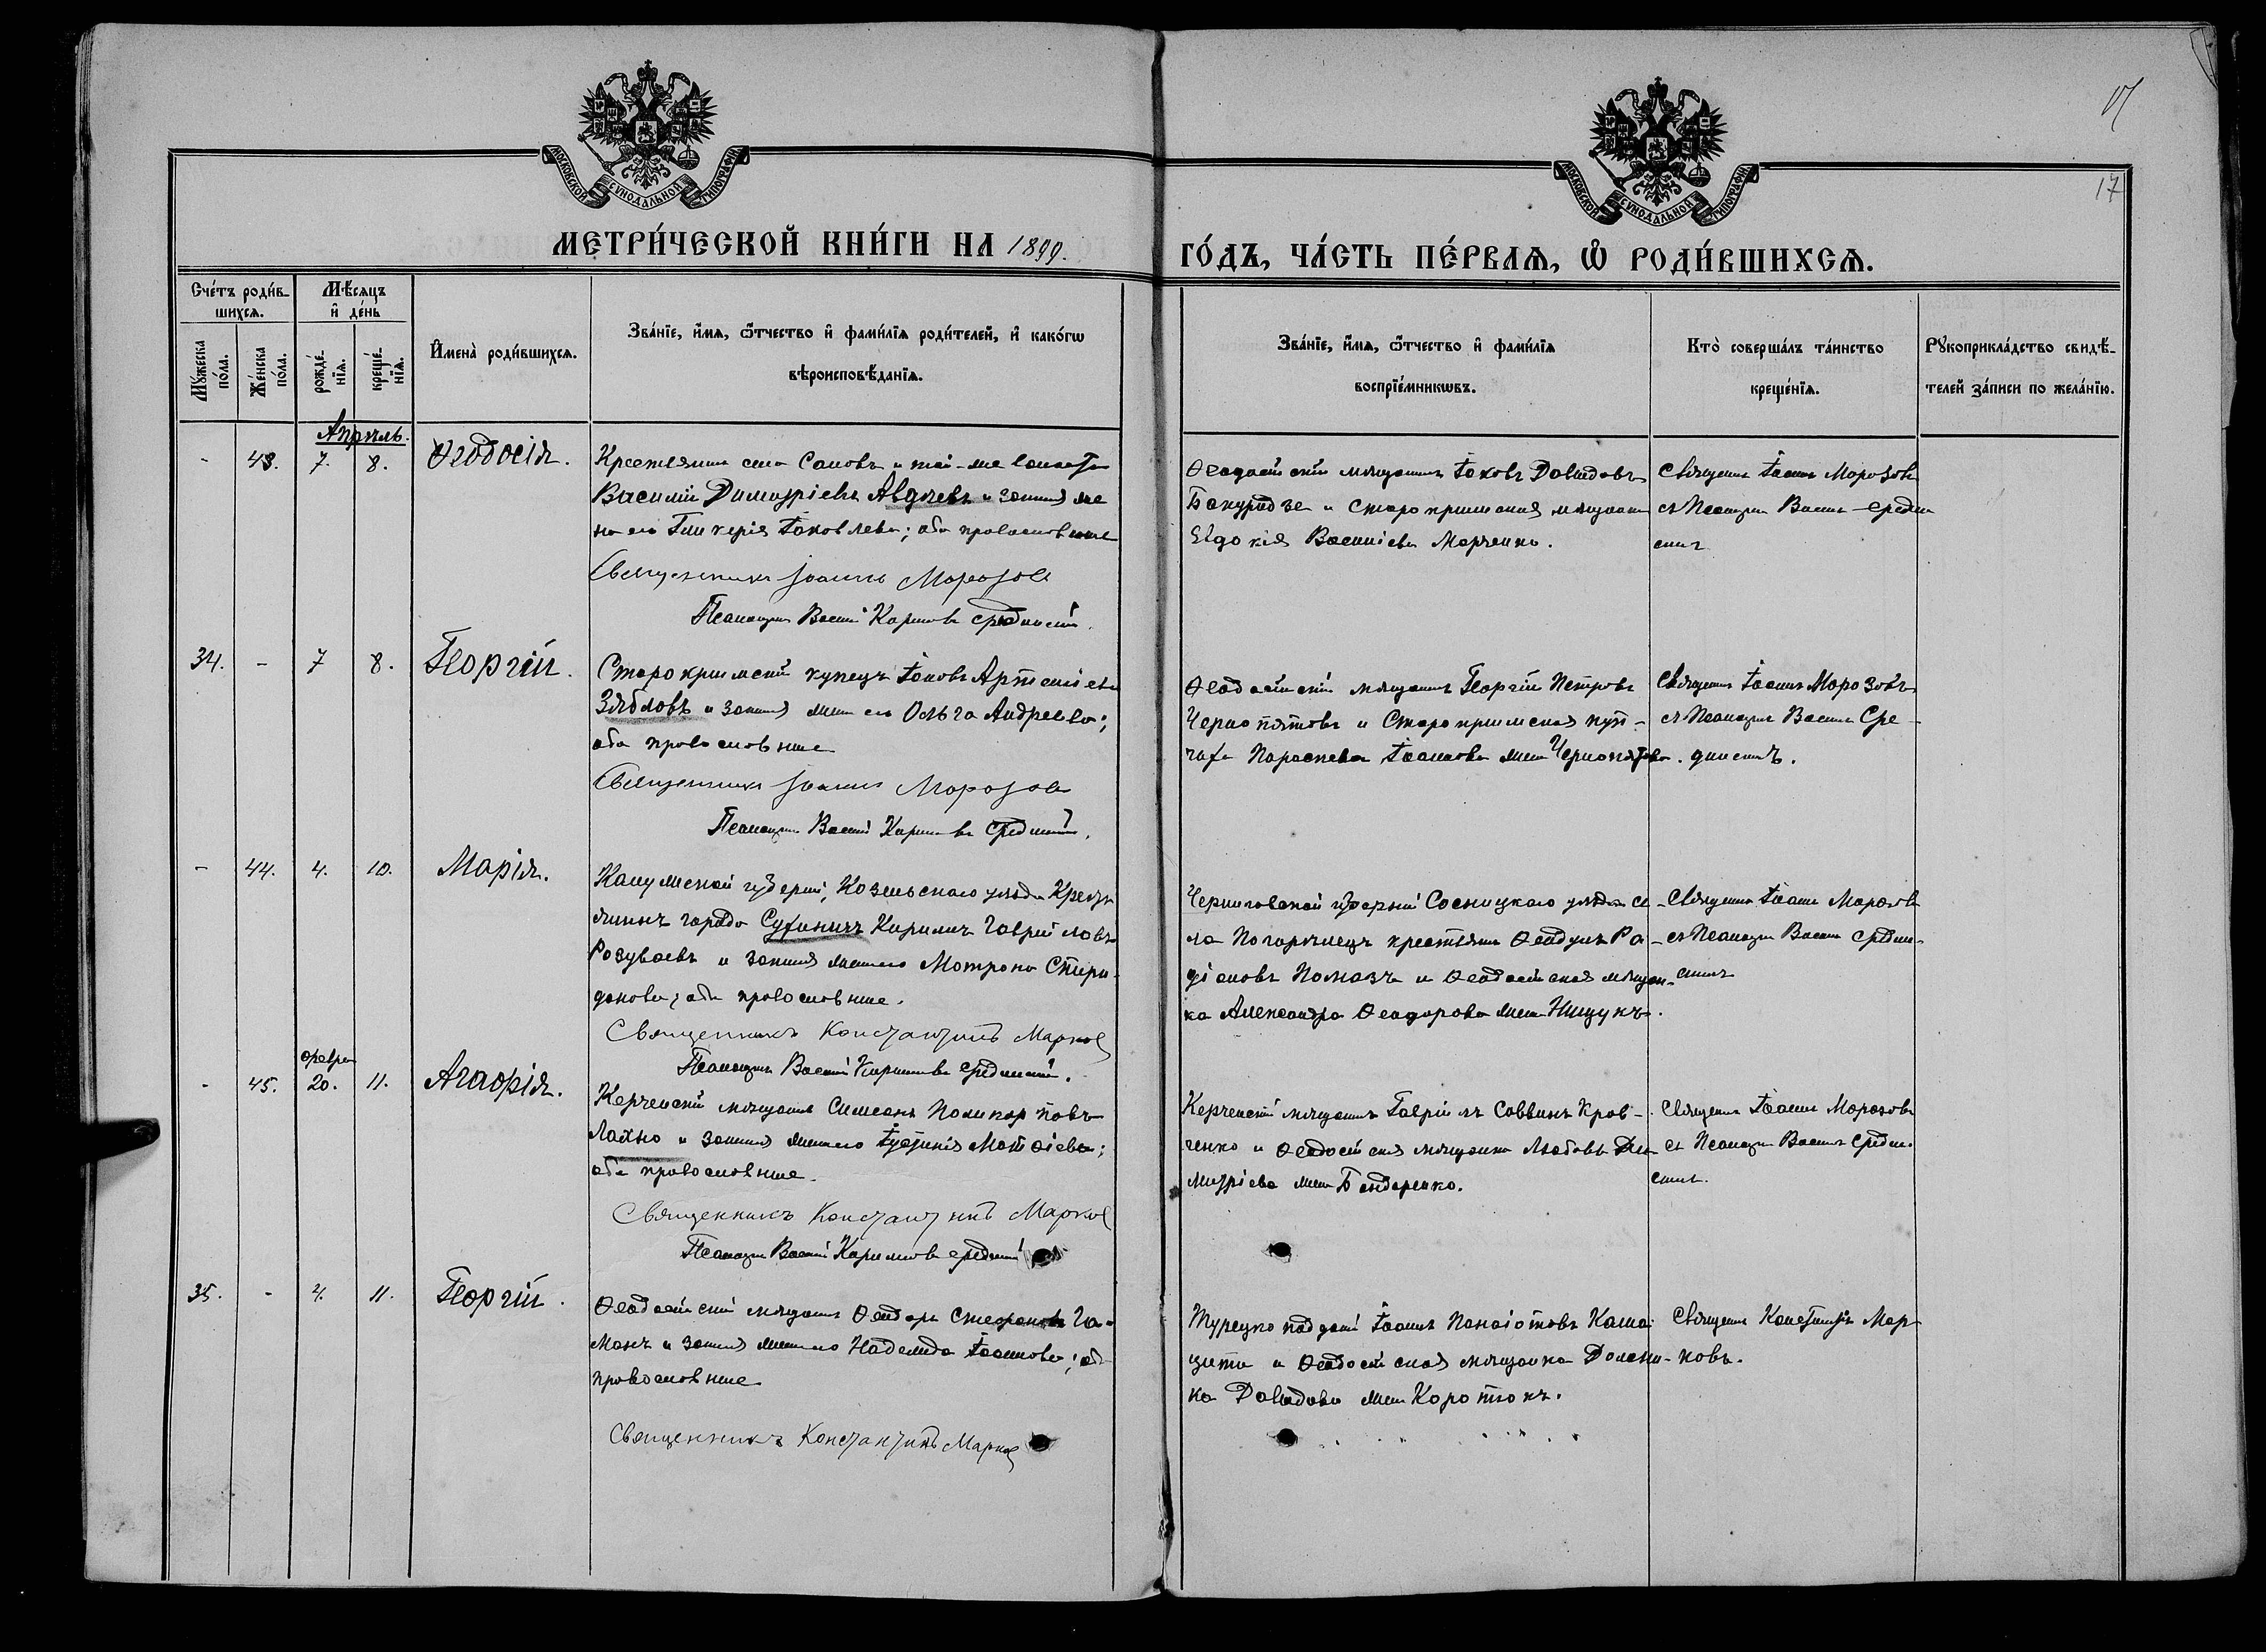 17
17
МОСКОВСКОЙ СѴНОДАЛЬНОЙ ТИПОГРАФІИ
МОСКОВСКОЙ СѴНОДАЛЬНОЙ ТИПОГРАФІИ
МЕТРИ́ЧЕСКОЙ КНИ́ГИ НА 1899.
ГО́ДЪ, ЧА́СТЬ ПЕ́РВАѦ, Ѡ РОДИ́ВШИХСѦ.
Сче́тъ роди́в-
шихсѧ.
Мꙋ́жеска
по́ла.
Же́нска
по́ла.
Мѣ́сѧцъ
и҆ де́нь
рожде́-
нїѧ.
креще́-
нїѧ.
И҆мена̀ роди́вшихсѧ.
Зва́нїе, и҆́мѧ, ѻ҆́тчество и҆ фами́лїѧ роди́телей, и҆ како́гѡ
вѣроисповѣ́данїѧ.
Зва́нїе, и҆́мѧ, ѻ҆́тчество и҆ фами́лїѧ
воспрїе́мникѡвъ.
Кто̀ соверша́лъ та́инство
креще́нїѧ.
Рꙋкоприкла́дство свидѣ́-
телей за́писи по жела́нїю.
Апрѣль.
- 43. 7. 8. Ѳеодосія.
Крестьянинъ села
Василій Димитріевъ Авдѣевъ и законная же
на его Гликерія Іаковлева; оба православные
Священникъ Іоаннъ Морозовъ
Псаломщикъ Василій Карповъ Срединскій.
Ѳеодосійскій мѣщанинъ Іаковъ Давидовъ
Бакурадзе и Старокрымская мѣщанка
Евдокія Василіева Марченко.
Священникъ Іоаннъ Морозовъ
съ Псаломщик. Василіемъ Средин
скимъ
34. - 7 8. Георгій.
Старокрымскій купецъ Іаковъ Артеміевъ
Зябловъ и законная жена его Ольга Андреева;
оба православные
Священникъ Іоаннъ Морозовъ
Псаломщикъ Василій Карповъ Срединскій.
Ѳеодосійскій мѣщанинъ Георгій Петровъ
Чернопятовъ и Старокрымская куп-
чиха Параскева Іоаннова жена Чернопятова.
Священникъ Іоаннъ Морозовъ
съ Псаломщик. Василіемъ Сре-
динскимъ.
- 44. 4. 10. Марія.
Калужской губерніи, Козельскаго уѣзда Кресть
янинъ города Сухиничъ Кириллъ Гавріиловъ
Разуваевъ и законная жена его Матрона Спири-
донова; оба православные.
Священникъ Константинъ Марковъ
Псаломщикъ Василій Карповъ Срединскій.
Черниговской губерніи Сосницкаго уѣзда се-
ла Погорѣлецъ крестьянинъ Ѳеодулъ Ра-
діоновъ Помазъ и Ѳеодосійская мѣщан-
ка Александра Ѳеодорова жена Нищукъ.
Священникъ Іоаннъ Морозовъ
съ Псаломщик. Василіемъ Средин-
скимъ
февра
- 45. 20. 11. Агафія.
Керченскій мѣщанинъ Симеонъ Поликарповъ
Лахно и законная жена его Іустинія Матѳіева;
оба православные.
Священникъ Константинъ Марковъ
Псаломщикъ Василій Карповъ Срединскій
Керченскій мѣщанинъ Гавріилъ Саввинъ Крав-
ченко и Ѳеодосійская мѣщанка Любовь Ди-
митріева жена Бондаренко.
Священникъ Іоаннъ Морозовъ
съ Псаломщик. Василіемъ Средин-
скимъ.
35. - 4. 11. Георгій.
Ѳеодосійскій мѣщанинъ Ѳеодоръ Стефановъ Га-
манъ и законная жена его Надежда Іоаннова; оба
православные
Священникъ Константинъ Марковъ
Турецко подданный Іоаннъ Панаіотовъ
и Ѳеодосійская мѣщанка
Давидова жена Коротюкъ.
Священникъ Константинъ Мар-
ковъ.